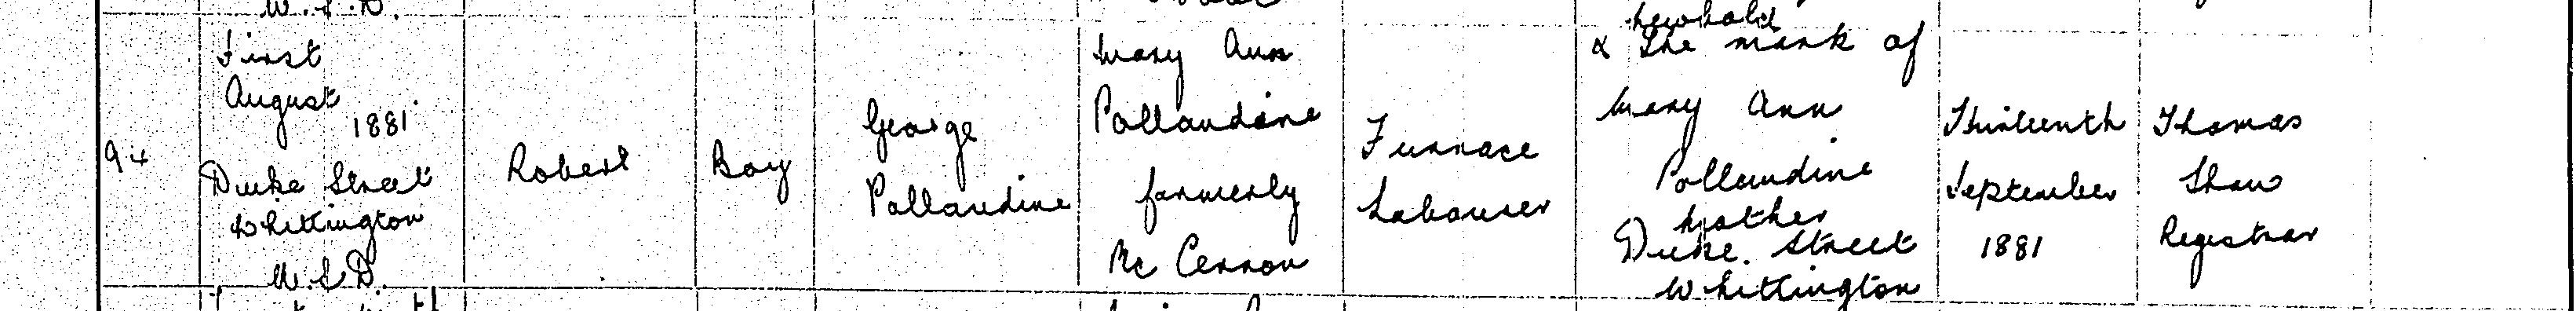 W.S.D.
First
August
1881
Duke Street
Whittington
W.S.D.
94
Robert
Boy
George
Pollaudine
Mary Ann
Pollaudine
formerly
Mc Cennon
Furnace
Labourer
Newbold
x The mark of
Mary Ann
Pollaudine
Mother
Duke Street
Whittington
Thirteenth
September
1881
Thomas
Shaw
Registrar